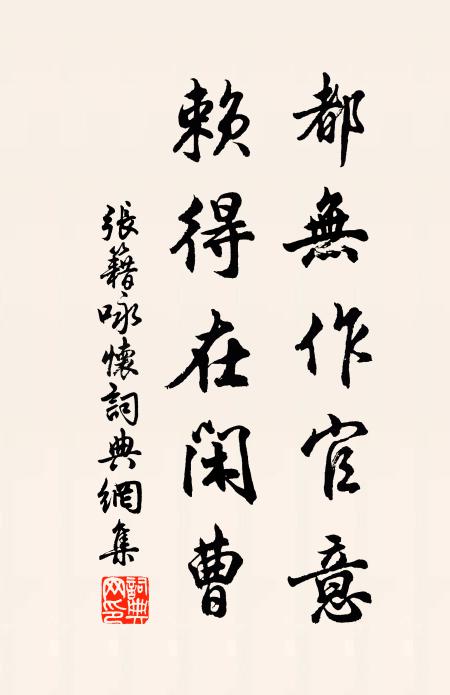 都無作官意
賴得在閑曹
張籍咏懷詞典網集
詞典網印